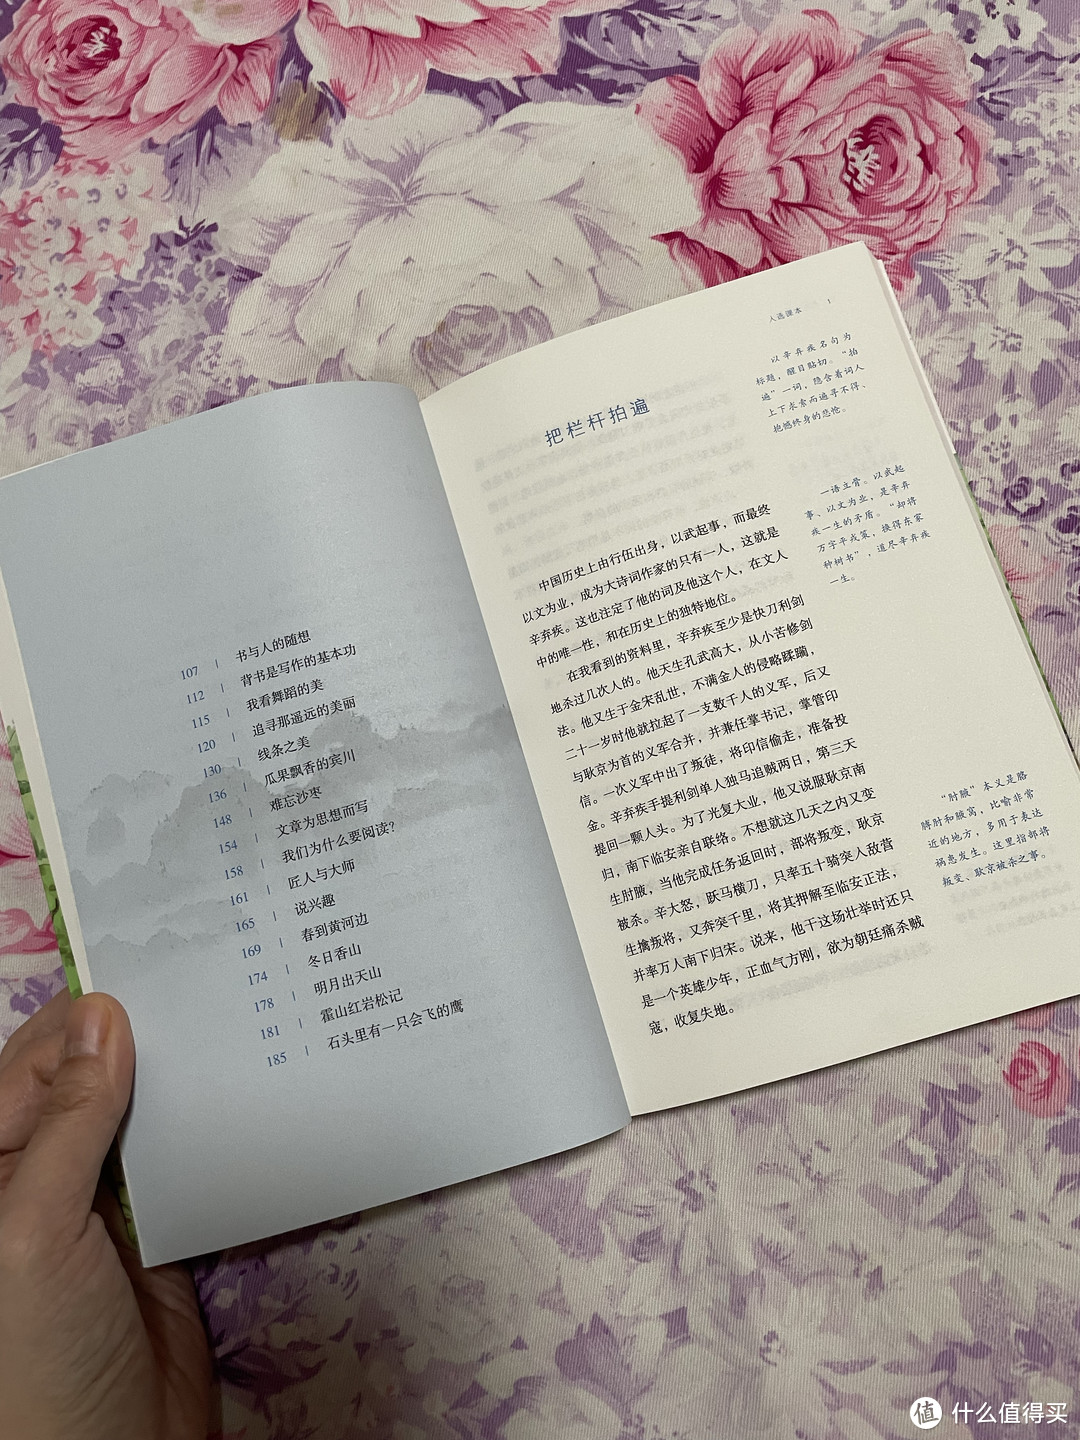 107 | 书与人的随想
112 | 背书是写作的基本功
115 | 我看舞蹈的美
120 | 追寻那遥远的美丽
130 | 线条之美
136 | 瓜果飘香的宾川
148 | 难忘沙枣
154 | 文章为思想而写
158 | 我们为什么要阅读？
161 | 匠人与大师
165 | 说兴趣
169 | 春到黄河边
174 | 冬日香山
178 | 明月出天山
181 | 霍山红岩松记
185 | 石头里有一只会飞的鹰
入选课本 1
把栏杆拍遍
中国历史上由行伍出身，以武起事，而最终
以文为业，成为大诗词作家的只有一人，这就是
辛弃疾。这也注定了他的词及他这个人，在文人
中的唯一性，和在历史上的独特地位。
在我看到的资料里，辛弃疾至少是快刀利剑
地杀过几次人的。他天生孔武高大，从小苦修剑
法。他又生于金宋乱世，不满金人的侵略蹂躏，
二十一岁时他就拉起了一支数千人的义军，后又
与耿京为首的义军合并，并兼任掌书记，掌管印
信。一次义军中出了叛徒，将印信偷走，准备投
金。辛弃疾手提利剑单人独马追贼两日，第三天
提回一颗人头。为了光复大业，他又说服耿京南
归，南下临安亲自联络。不想就这几天之内又变
生肘腋，当他完成任务返回时，部将叛变，耿京
被杀。辛大怒，跃马横刀，只率五十骑突入敌营
生擒叛将，又奔突千里，将其押解至临安正法，
并率万人南下归宋。说来，他干这场壮举时还只
是一个英雄少年，正血气方刚，欲为朝廷痛杀贼
寇，收复失地。
以辛弃疾名句为
标题，醒目贴切。“拍
遍”一词，隐含着词人
上下求索而遍寻不得、
抱憾终身的悲怆。
一语立骨。以武起
事、以文为业，是辛弃
疾一生的矛盾。“却将
万字平戎策，换得东家
种树书”，道尽辛弃疾
一生。
“肘腋”本义是胳
膊肘和腋窝，比喻非常
近的地方，多用于表达
祸患发生。这里指部将
叛变、耿京被杀之事。
值 什么值得买